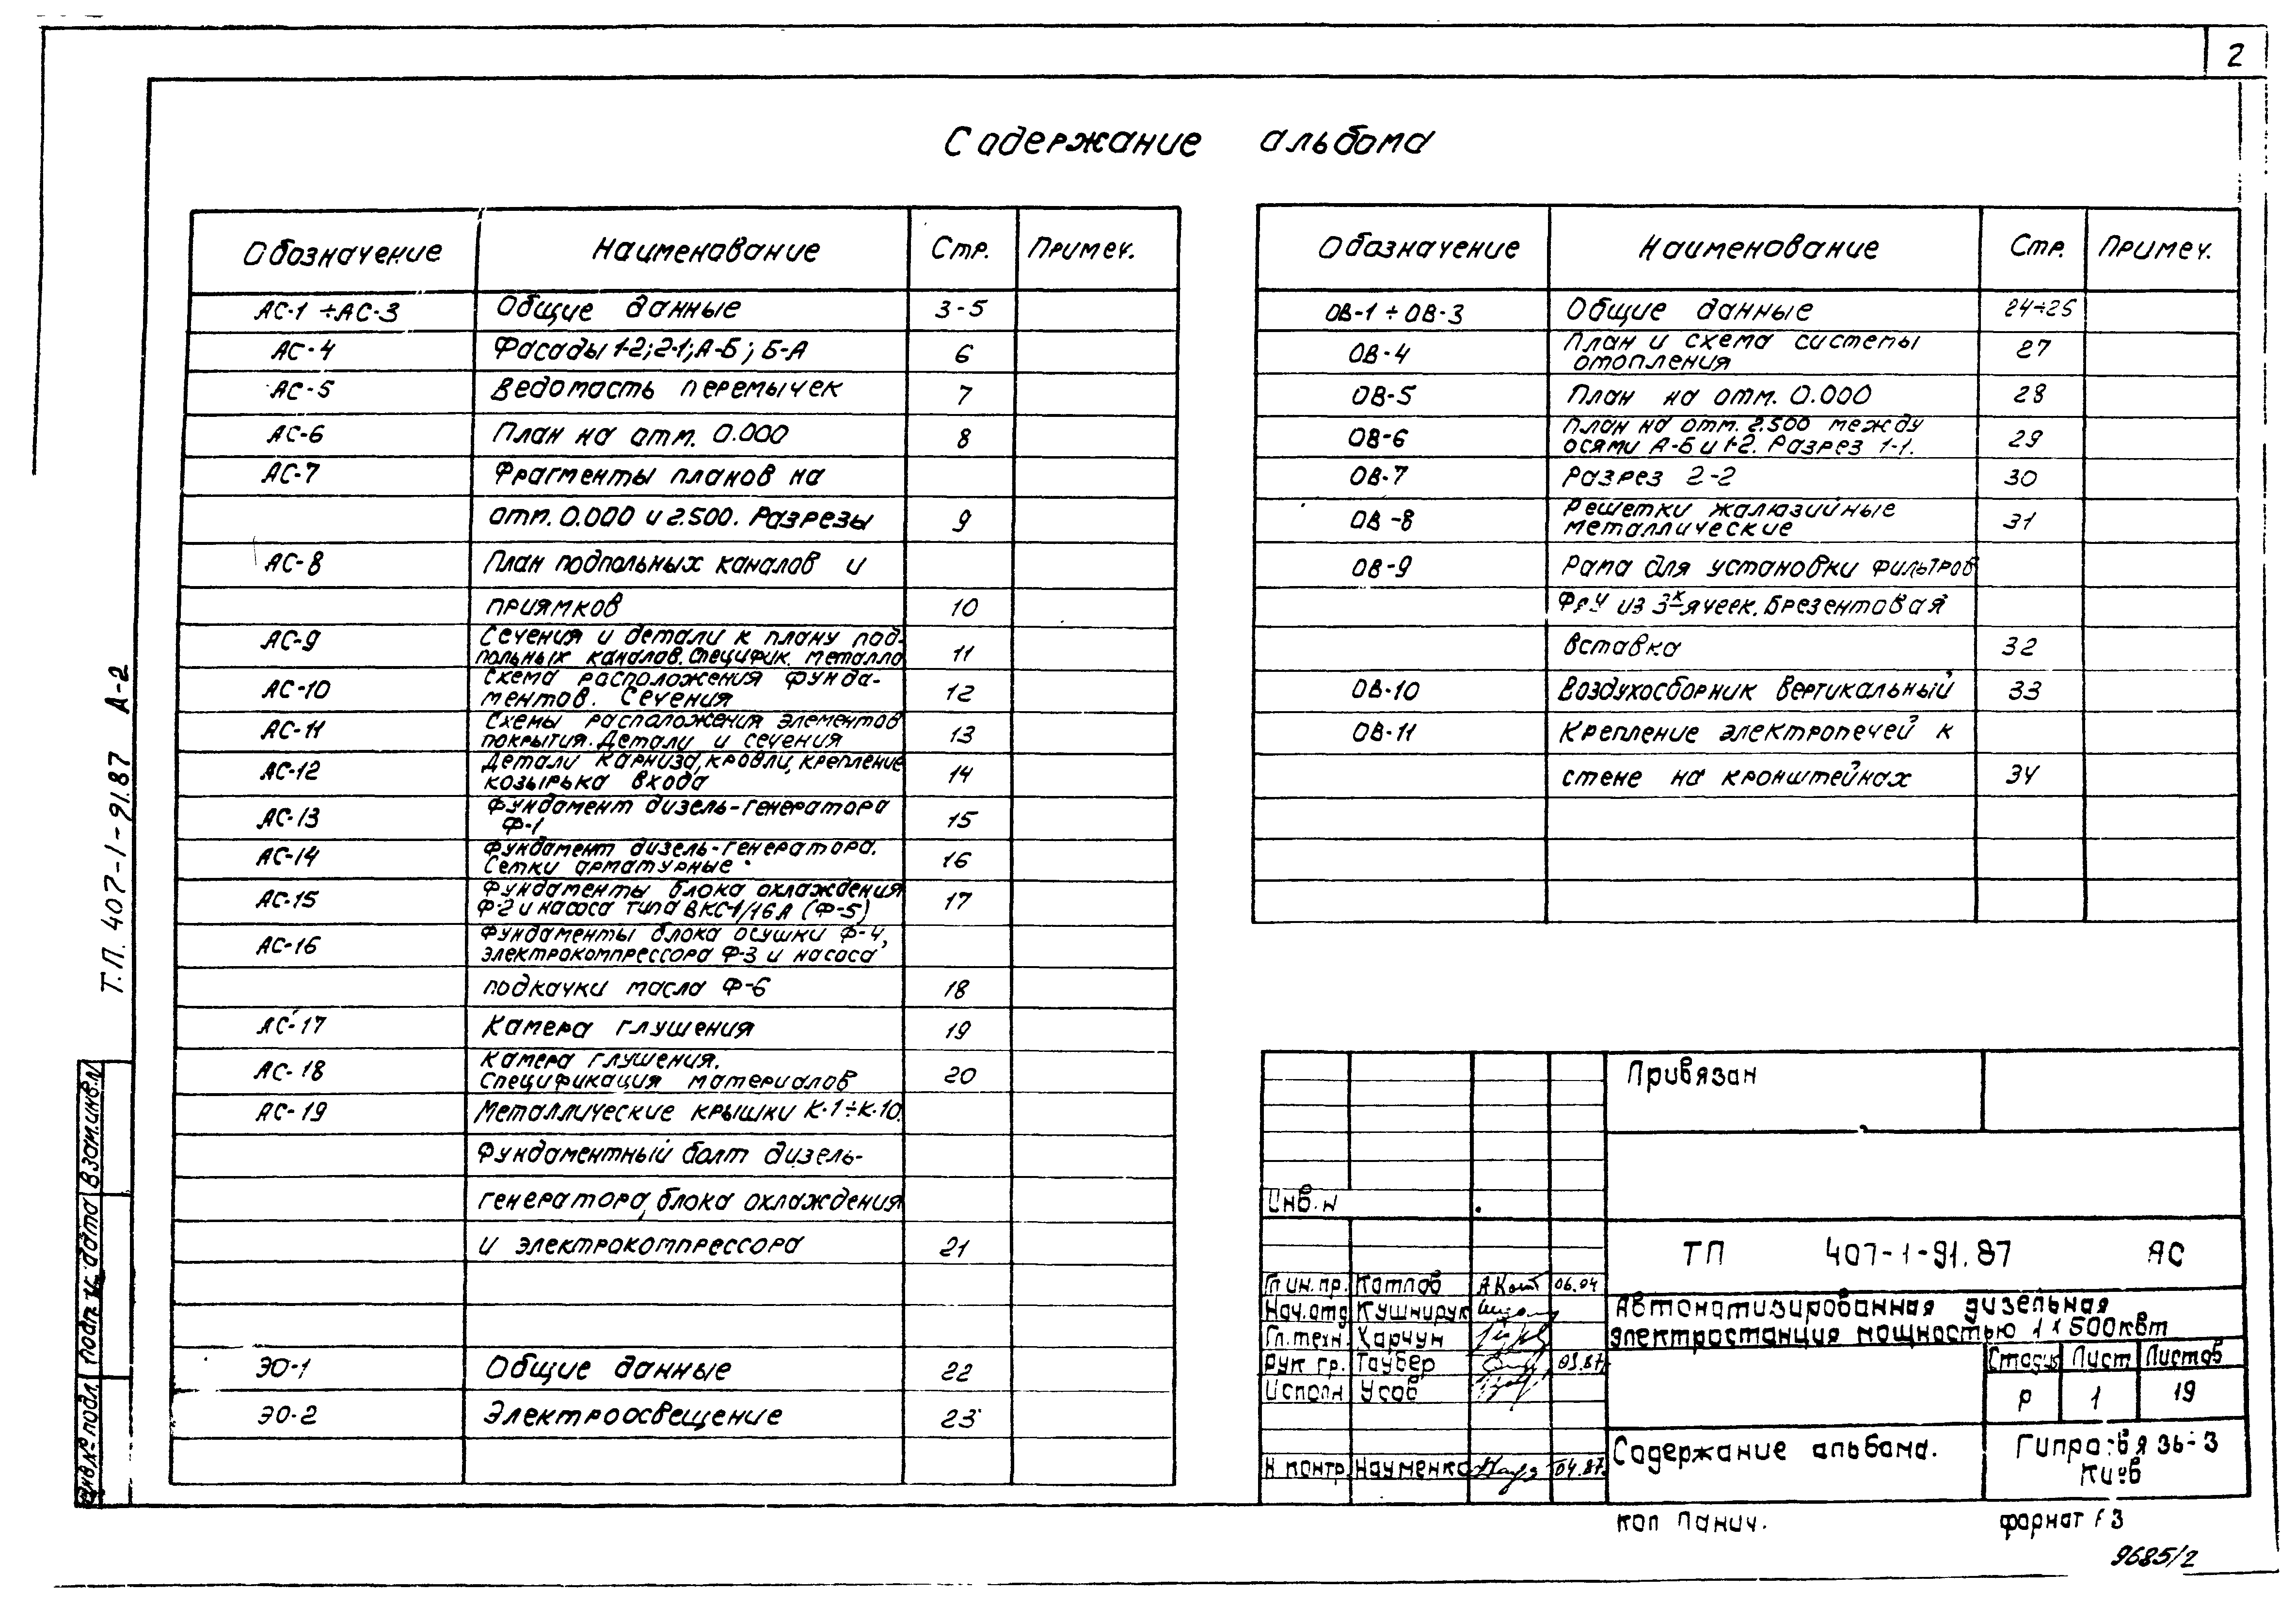 2
Содержание альбома
Обозначение Наименование Стр. Примеч.
АС-1 ÷ АС-3 Общие данные 3-5
АС-4 Фасады 1-2; 2-1; А-Б; Б-А 6
АС-5 Ведомасть перемычек 7
АС-6 План на отм. 0.000 8
АС-7 Фрагменты планов на
отм. 0.000 и 2.500. Разрезы 9
АС-8 План подпольных каналов и
приямков 10
АС-9 Сечения и детали к плану под-
польных каналов. Специфик. металла 11
АС-10 Схема расположения фунда-
ментов. Сечения 12
АС-11 Схемы расположения элементов
покрытия. Детали и сечения 13
АС-12 Детали карниза, кровли, крепление
козырька входа 14
АС-13 Фундамент дизель-генератора
Ф-1 15
АС-14 Фундамент дизель-генератора.
Сетки арматурные 16
АС-15 Фундаменты блока охлаждения
Ф-2 и насоса типа ВКС-1/16А (Ф-5) 17
АС-16 Фундаменты блока осушки Ф-4,
электрокомпрессора Ф-3 и насоса
подкачки масла Ф-6 18
АС-17 Камера глушения 19
АС-18 Камера глушения.
Спецификация материалов 20
АС-19 Металлические крышки К-1÷К-10.
Фундаментный болт дизель-
генератора, блока охлаждения
и электрокомпрессора 21
ЭО-1 Общие данные 22
ЭО-2 Электроосвещение 23
Обозначение Наименование Стр. Примеч.
ОВ-1 ÷ ОВ-3 Общие данные 24÷26
ОВ-4 План и схема системы
отопления 27
ОВ-5 План на отм. 0.000 28
ОВ-6 План на отм. 2.500 между
осями А-Б и 1-2. Разрез 1-1. 29
ОВ-7 Разрез 2-2 30
ОВ-8 Решетки жалюзийные
металлические 31
ОВ-9 Рама для установки фильтров
ФяУ из 3х-ячеек. Брезентовая
вставка 32
ОВ-10 Воздухосборник вертикальный 33
ОВ-11 Крепление электропечей к
стене на кронштейнах 34
Привязан
Инв. N
ТП 407-1-91.87 АС
Гл.ин.пр. Котлов 06.04
Нач.отд Кушнирук
Гл.техн. Харчун
Рук гр. Таубер 03.87.
Исполн Усов
Н контр. Науменко 04.87.
Автоматизированная дизельная
электростанция мощностью 1х500квт
Стадия Лист Листов
Р 1 19
Содержание альбома.
Гипросвязь-3
Киев
коп Панич.
формат А3
9685/2
Т.П. 407-1-91.87 А-2
Взам.инв.N
Подп. и дата
Инв.№ подл.